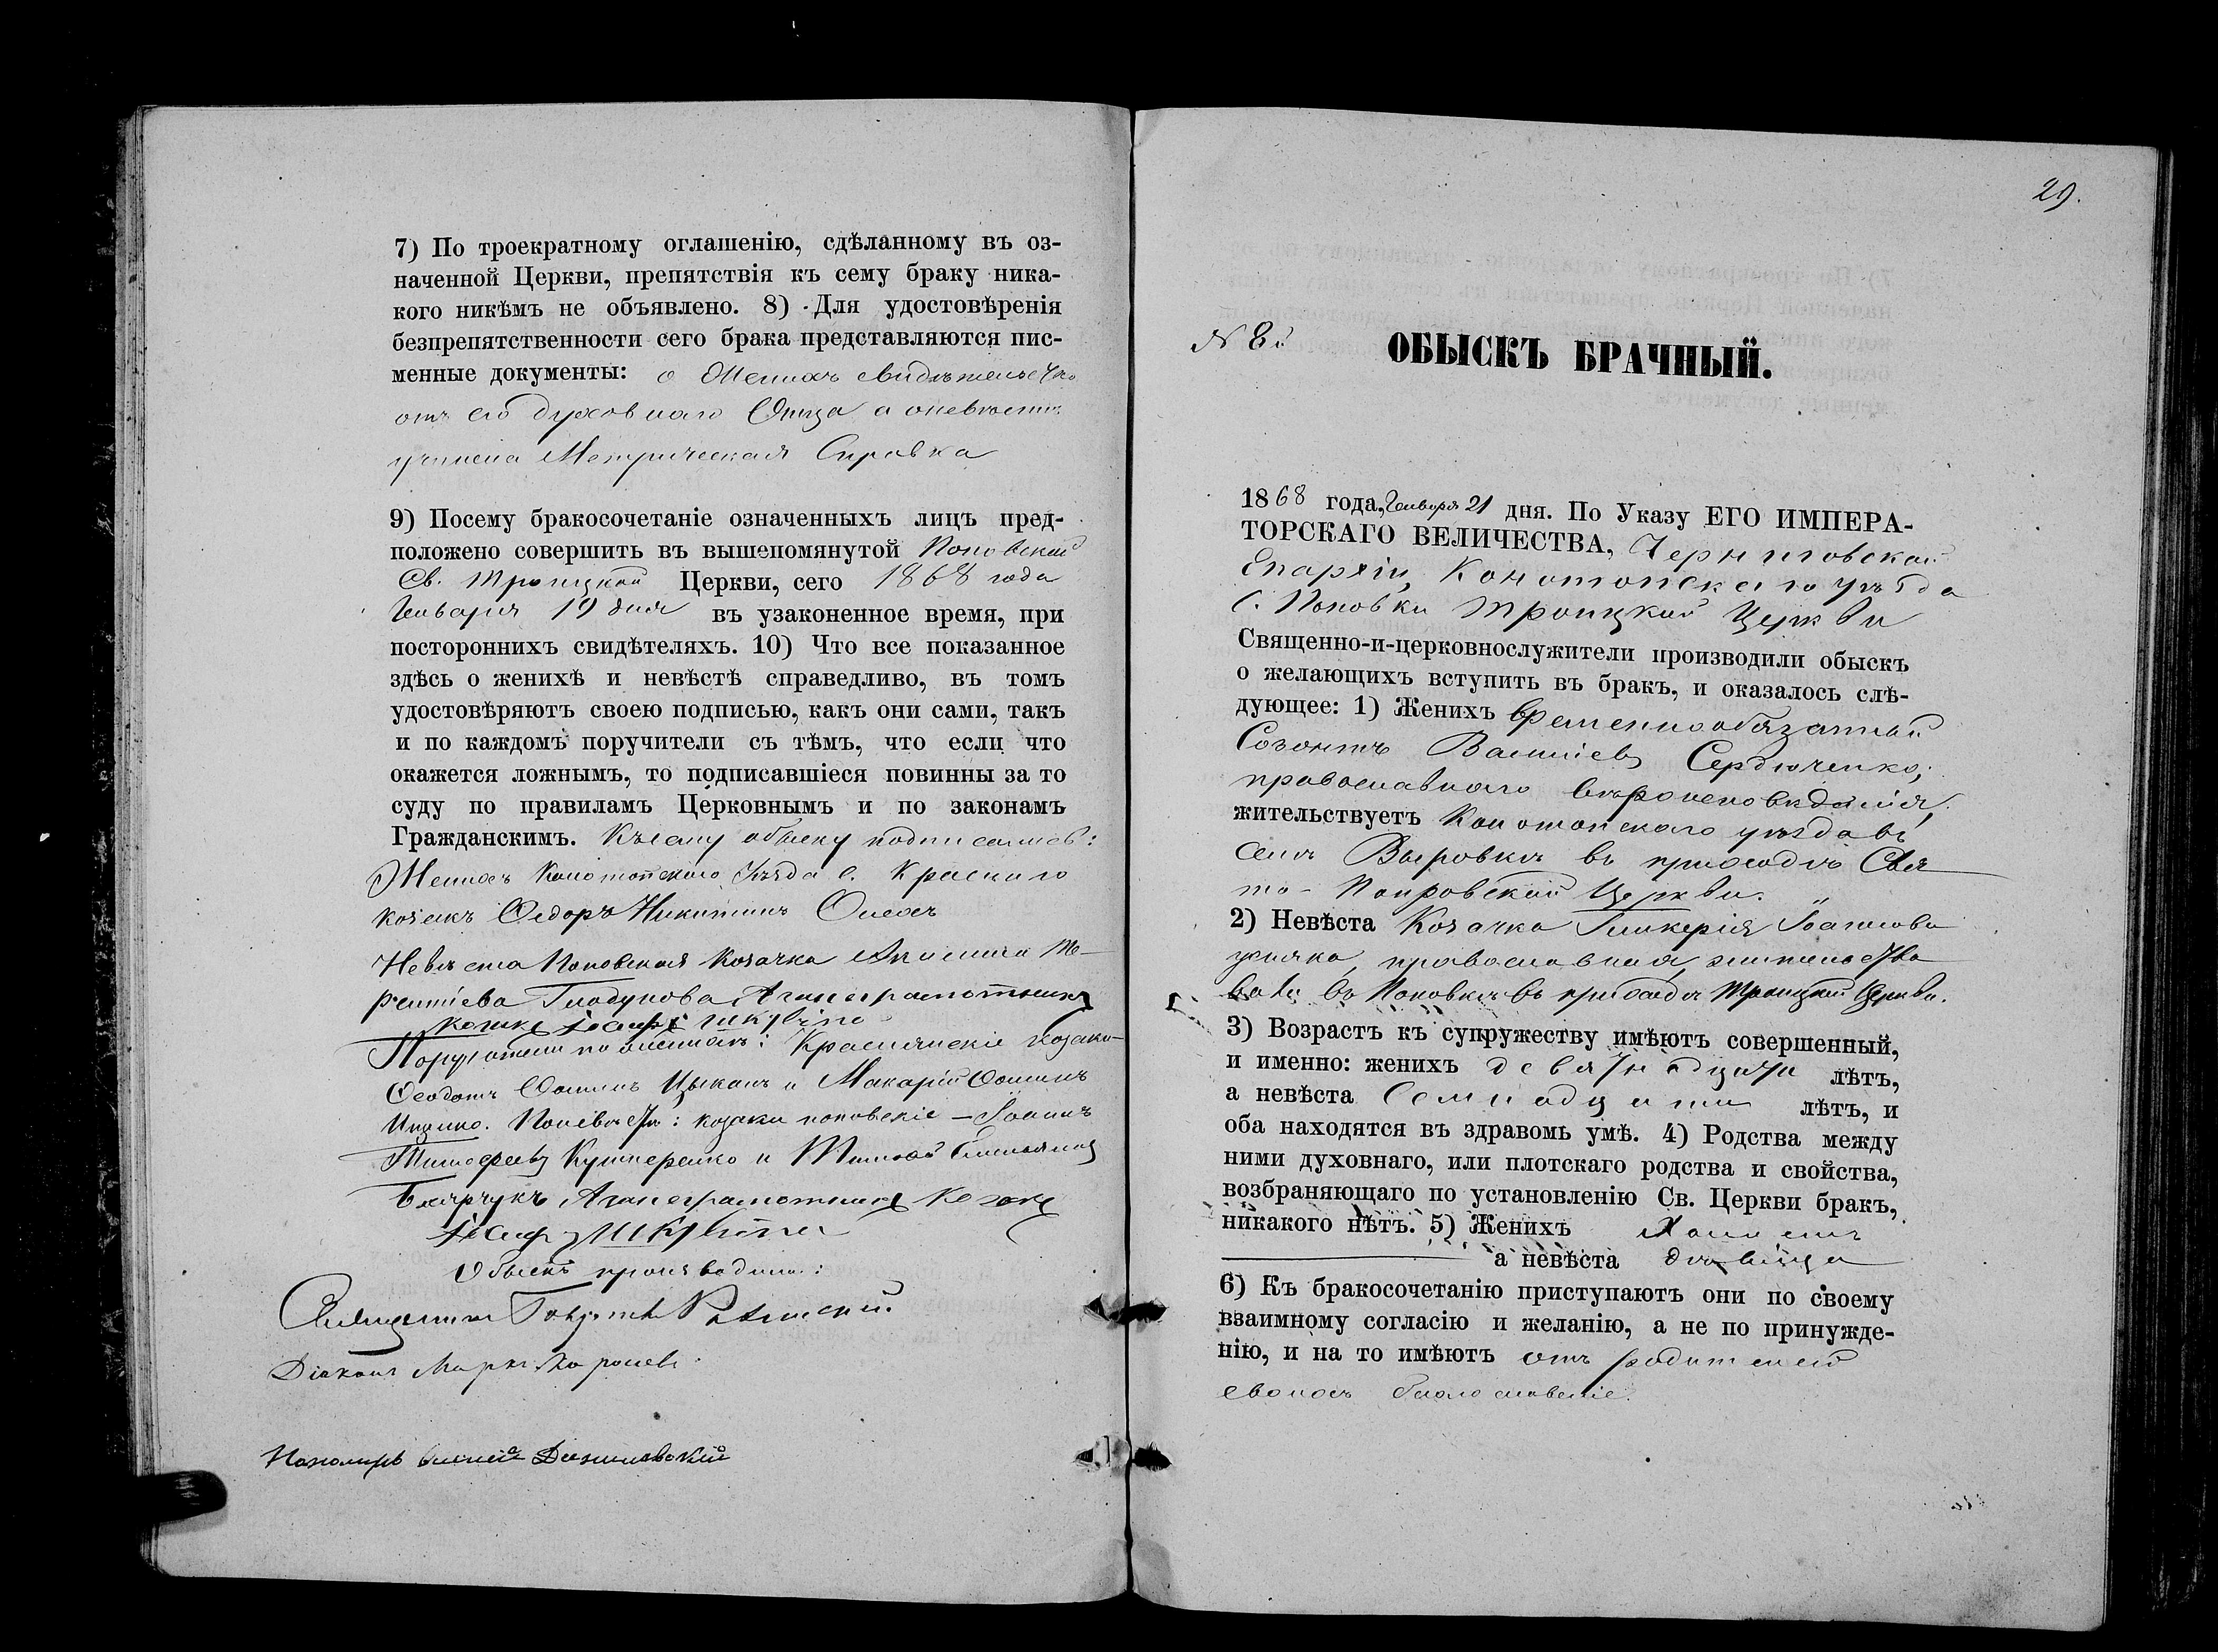 7) По троекратному оглашенію, сдѣланному въ оз-
наченной Церкви, препятствія къ сему браку ника-
кого никѣмъ не объявлено. 8) Для удостовѣренія
безпрепятственности сего брака представляются пис-
менные документы: о женихѣ свидѣтельство
отъ его духовнаго Отца а о невѣстѣ
учинена Метрическая Справка
9) Посему бракосочетаніе означенныхъ лицъ пред-
положено совершить въ вышепомянутой Поповской
Св. Троицкой Церкви, сего 1868 года
Генваря 19 дня въ узаконенное время, при
постороннихъ свидѣтеляхъ. 10) Что все показанное
здѣсь о женихѣ и невѣстѣ справедливо, въ томъ
удостовѣряютъ своею подписью, какъ они сами, такъ
и по каждомъ поручители съ тѣмъ, что если что
окажется ложнымъ, то подписавшіеся повинны за то
суду по правиламъ Церковнымъ и по законамъ
Гражданскимъ. Къ сему обыску подписались:
Женихъ Конотопскаго уѣзда с. Краснаго
козакъ Ѳедоръ Никитинъ
Невѣста Поповская козачка
Гладунова А за неграмотныхъ
козакъ
Поручители по женихѣ: Краснянскіе козаки
Ѳеодотъ Ѳоминъ Цыканъ и Макарій Ѳоминъ
По невѣстѣ: козаки поповскіе – Іоаннъ
Тимоѳеевъ Кушнеренко и
А за неграмотныхъ козакъ
Обыскъ производили:
Священникъ
Діаконъ Маркъ
Пономарь
29.
N 8й
ОБЫСКЪ БРАЧНЫЙ.
1868 года, Генваря 21 дня. По Указу ЕГО ИМПЕРА-
ТОРСКАГО ВЕЛИЧЕСТВА, Черниговской
Епархіи, Конотопскаго уѣзда
с. Поповки Троицкой Церкви
Священно-и-церковнослужители производили обыскъ
о желающихъ вступить въ бракъ, и оказалось слѣ-
дующее: 1) Женихъ временнообязанный
Созонтъ Василіевъ Сердюченко;
православнаго вѣроисповѣданія,
жительствуетъ Конотопскаго уѣзда въ
селѣ Выровкѣ въ приходѣ Свя
то-Покровской Церкви.
2) Невѣста Козачка Гликерія Іоаннова
православная, жительство
въ Поповкѣ въ приходѣ Троицкой Церкви.
3) Возрастъ къ супружеству имѣютъ совершенный,
и именно: женихъ девятнадцати лѣтъ,
а невѣста Семнадцати лѣтъ, и
оба находятся въ здравомъ умѣ. 4) Родства между
ними духовнаго, или плотскаго родства и свойства,
возбраняющаго по установленію Св. Церкви бракъ,
никакого нѣтъ. 5) Женихъ холостъ
а невѣста дѣвица
6) Къ бракосочетанію приступаютъ они по своему
взаимному согласію и желанію, а не по принужде-
нію, и на то имѣютъ отъ родителей
своихъ благословеніе.